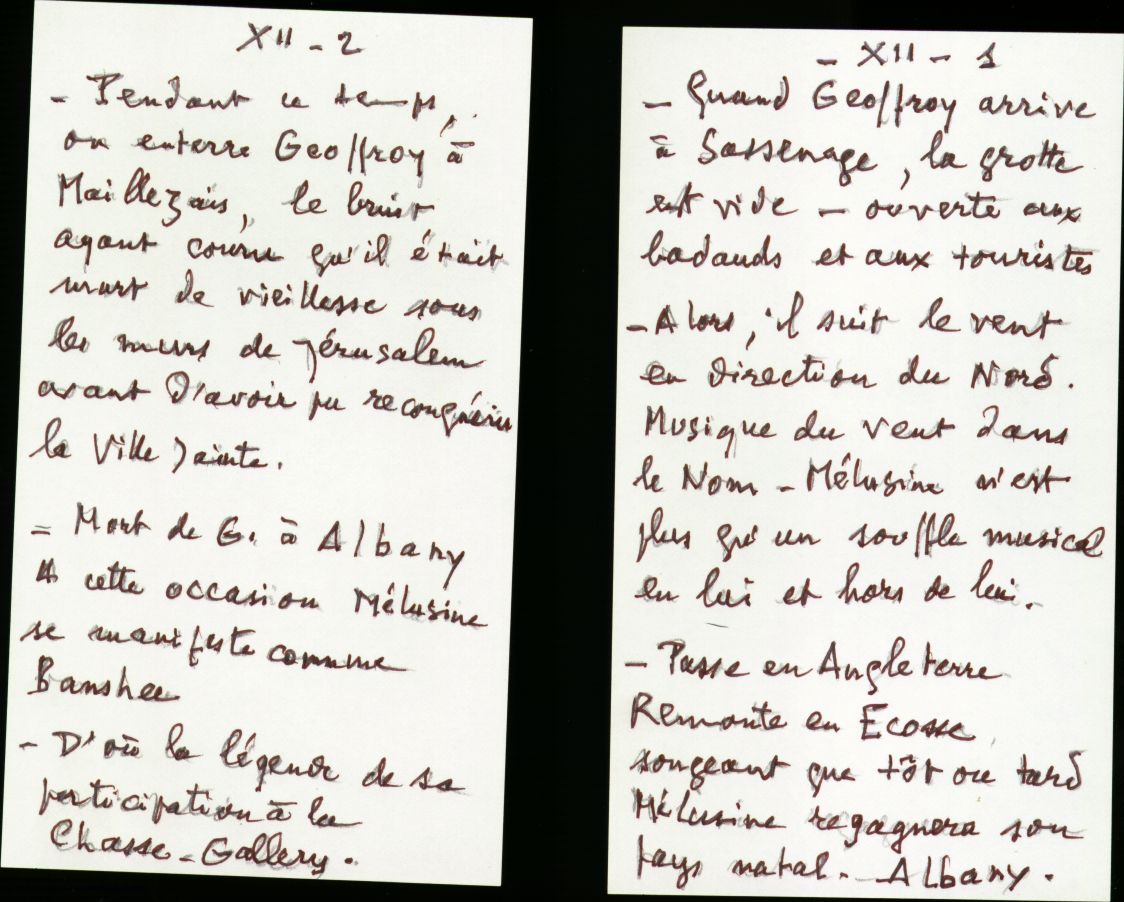 XII - 2
- Pendant ce temps,
on enterre Geoffroy à
Maillezais, le bruit
ayant couru qu'il était
mort de vieillesse sous
les murs de Jérusalem
avant d'avoir pu reconquérir
la Ville Sainte.
= Mort de G. à Albany
A cette occasion Mélusine
se manifeste comme
Banshee
- D'où la légende de sa
participation à la
Chasse-Gallery.
- XII - 1
- Quand Geoffroy arrive
à Sassenage, la grotte
est vide - ouverte aux
badauds et aux touristes
- Alors, il suit le vent
en direction du Nord.
Musique du vent dans
le Nom - Mélusine n'est
plus qu'un souffle musical
en lui et hors de lui.
- Passe en Angleterre
Remonte en Ecosse
songeant que tôt ou tard
Mélusine regagnera son
pays natal. - Albany.